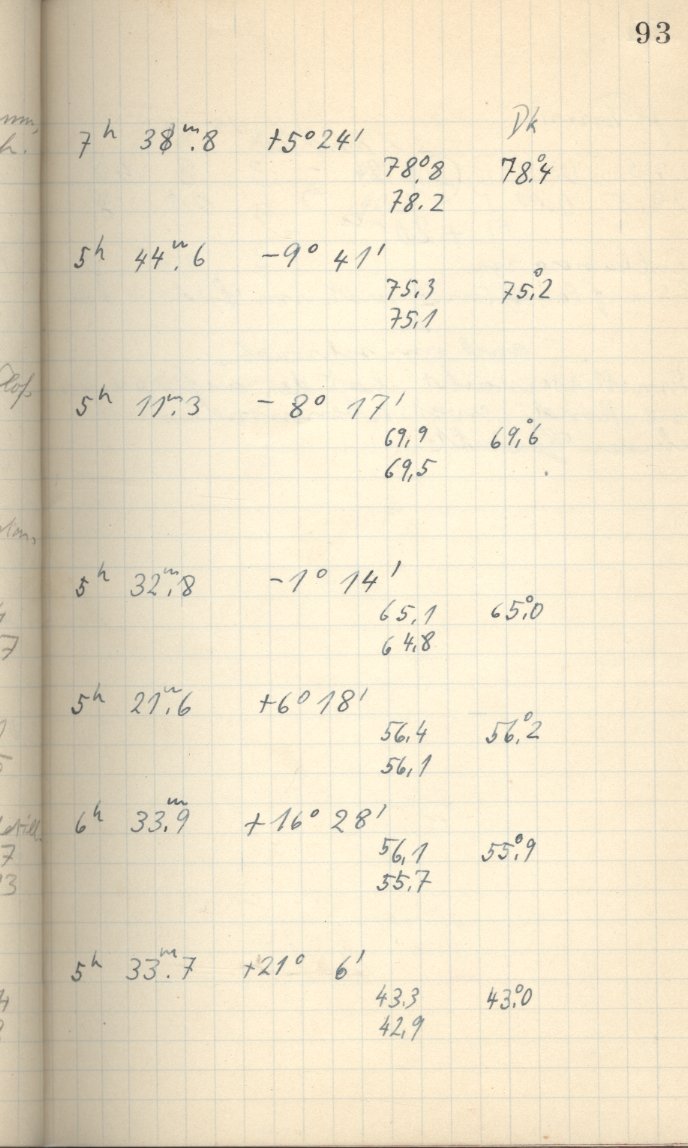 93
Dk
7h 38m.8 +5° 24'
78°.8 78°.4
78.2
5h 44m.6 -9° 41'
75.3 75°.2
75.1
5h 11m.3 -8° 17'
69.9 69°.6
69.5
5h 32m.8 -1° 14'
65.1 65°.0
64.8
5h 21m.6 +6° 18'
56.4 56°.2
56.1
6h 33m.9 +16° 28'
56.1 55°.9
55.7
5h 33m.7 +21° 6'
43.3 43°.0
42.9